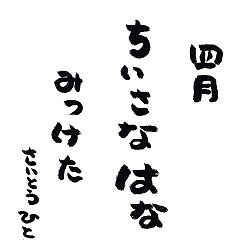 四月
ちいさな はな
みつけた
さいとうひと